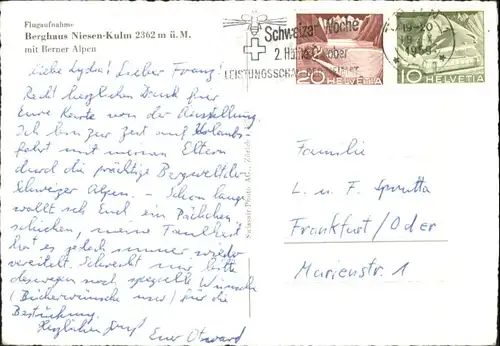 Flugaufnahme
Berghaus Niesen-Kulm 2362 m ü. M.
mit Berner Alpen
Liebe Lyda! Lieber Franz!
Recht herzlichen Dank für
Eure Karte von der Ausstellung.
Ich bin zur Zeit auf Urlaubs-
fahrt mit meinen Eltern
durch die prächtige Bergwelt der
Schweizer Alpen. - Schon lange
wollt ich Euch ein Päckchen
schicken, meine Faulheit
hat es jedoch immer wieder
vereitelt. Schreibt mir bitte
deswegen noch spezielle Wünsche
(Bücherwünsche usw) für die
Bestückung.
Herzlichen Gruß
Euer
Swissair-Photo AG., Zürich
Schweizer Woche
2. Hälfte Oktober
LEISTUNGSSCHAU DER HEIMAT
20 HELVETIA
10 HELVETIA
19-20
Familie
L. u. F. Sprutta
Frankfurt/Oder
Marienstr. 1